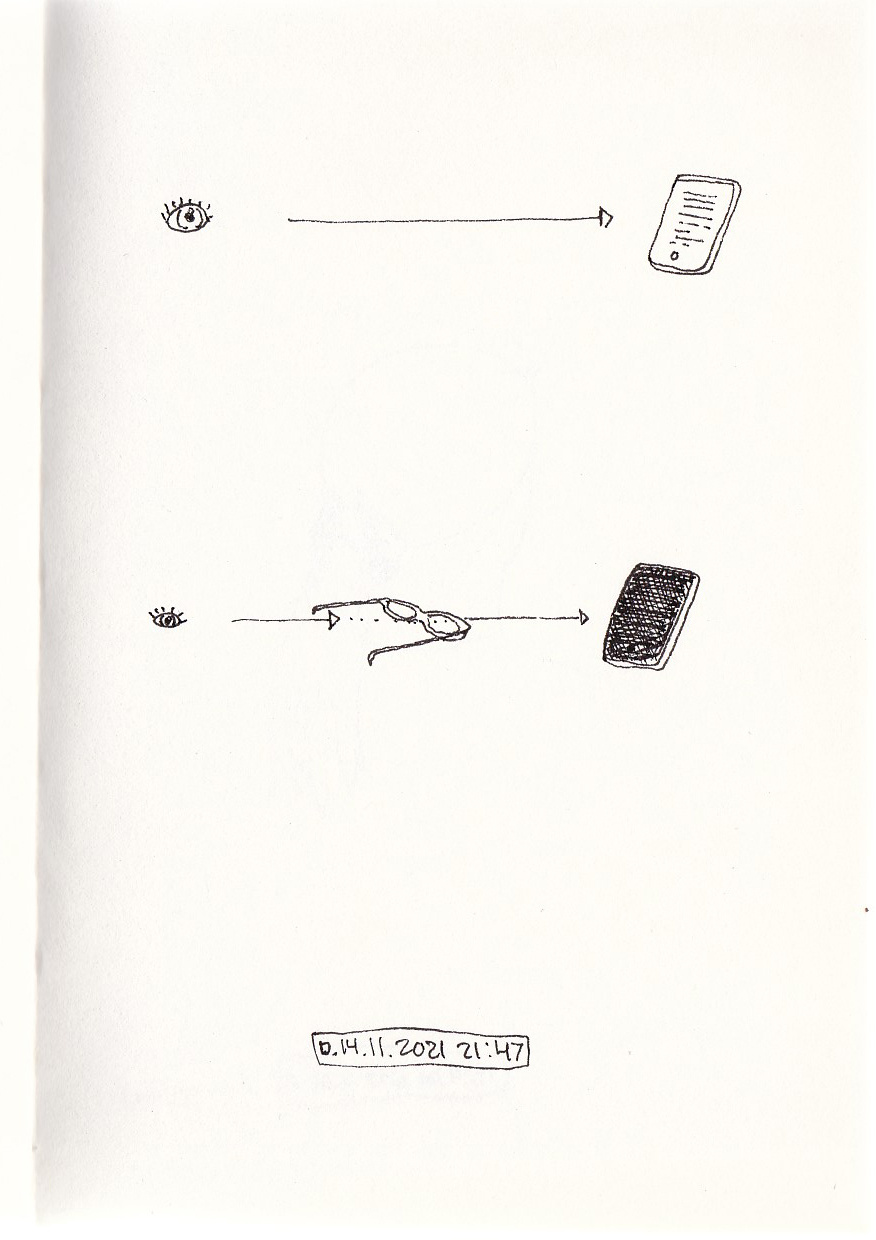 D.14.11.2021 21:47